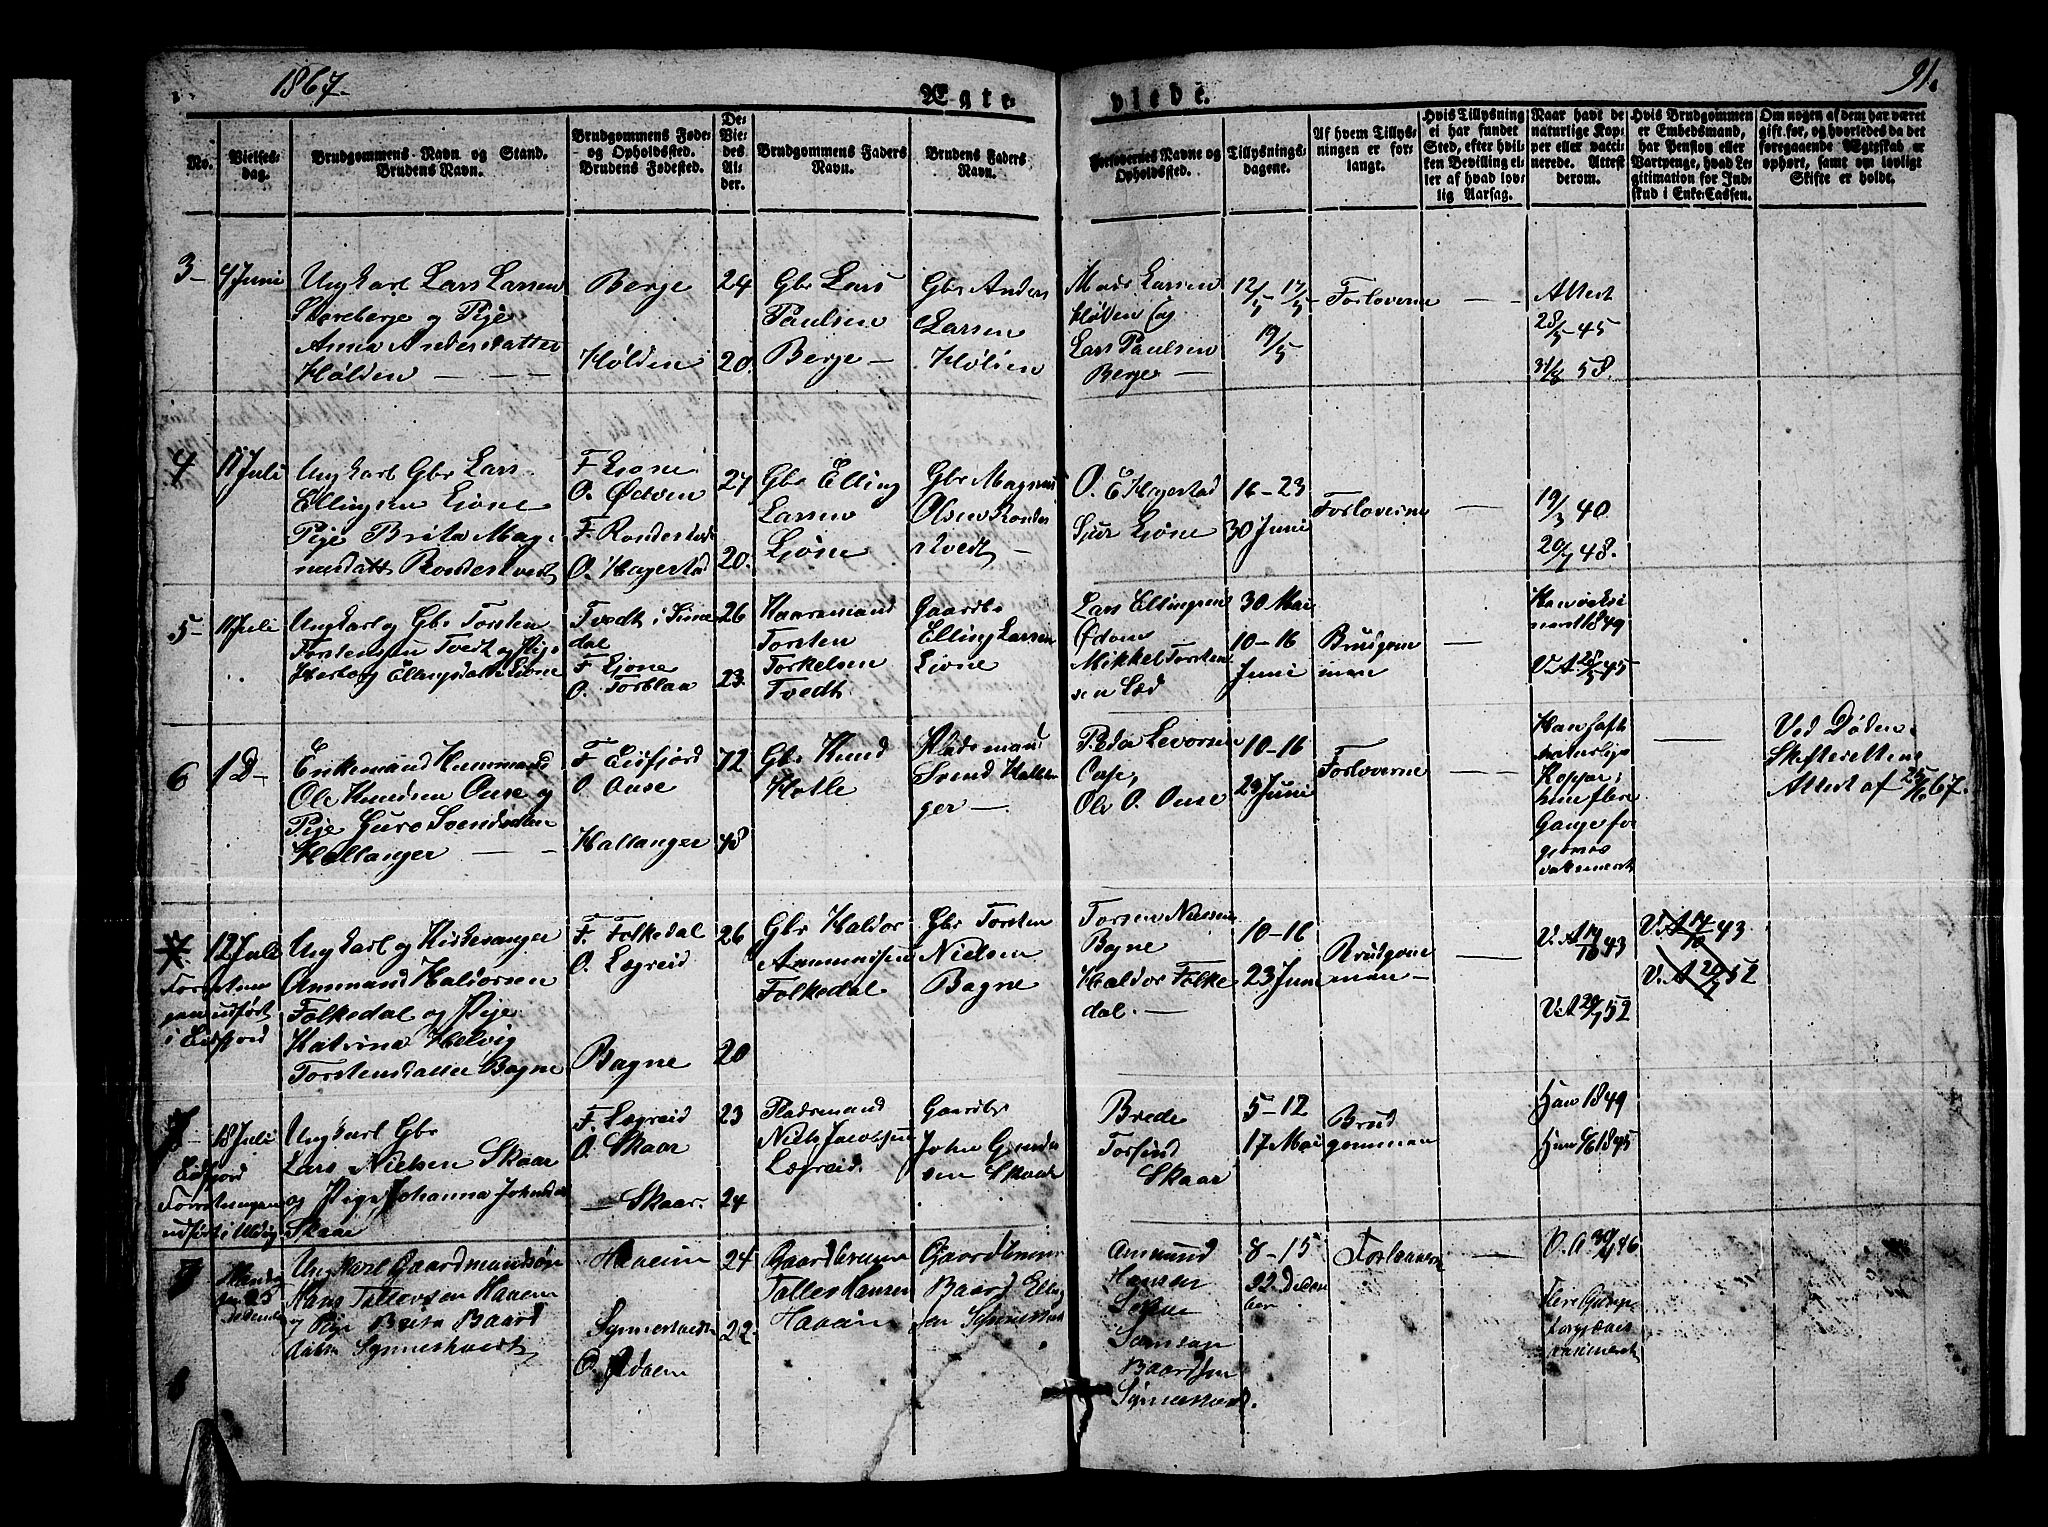 1867.
Ægte-
viede.
91.
No.
Vielses-
dag.
Brudgommens Navn og Stand.
Brudens Navn.
Brudgommens Føde-
og Opholdssted.
Brudens Fødested.
De
Vie-
des
Al-
der.
Brudgommens Faders
Navn.
Brudens Faders
Navn.
Forlovernes Navne og
Opholdssted.
Tillysnings-
dagene.
Af hvem Tillys-
ningen er for-
langt.
Hvis Tillysning
ei har fundet
Sted, efter hvil-
ken Bevilling el-
ler af hvad lov-
lig Aarsag.
Naar havt de
naturlige Kop-
per eller vacci-
nerede. Attest
derom.
Hvis Brudgommen
er Embedsmand,
har Pension eller
Vartpenge, hvad Le-
gitimation for Ind-
skud i Enke-Cassen.
Om nogen af dem har været
gift før, og hvorledes da det
foregaaende Ægteskab er
ophørt, samt om lovligt
Skifte er holdt.
3-
4 Juni
Ungkarl Lars Larsen
Storeberge og Pige
Anna Andersdatter
Hølden
Berge
Hølden
24
20.
Gbr Lars
Paulsen
Berge
Gbr Anders
Larsen
Hølden
Mads Larsen
Hølden og
Lars Paulsen
Berge
12/5 17/5
19/5
Forloverne
Attest
28/5 45
31/8 58.
4
11 Juli
Ungkarl Gbr Lars
Ellingsen Lione
Pige Brita Mag-
nusdatt
F. Lione
O. Ødven
O. Hagestad
27
20.
Gbr Elling
Larsen
Lione
Gbr Magnus
Olsen
O. E Hagestad
Sjur Lione
16-23
30 Juni
Forloverne
19/3 40.
20/7 48.
5-
11 Juli
Ungkarl og Gbr Torsten
Torstensen Tvedt og Pige
Herborg Ellingsdatt Lione
Tvedt i Sime
dal
F Lione
O. Torblaa
26
23.
Torsten
Torkelsen
Tvedt
Gaardbr
Elling Larsen
Lione
Lars Ellingsen
Ødven
Mikkel Torsten
sen Sæd
30 Mai
10-16
Juni
Brudgom
men
1849
45
6
1 D-
Enkemand
Ole Knudsen Onse og
Pige Guro Svendsdatter
Hallanger
F Eidfjord
O. Onse
Hallanger
72
48
Gbr Knud
Pladsmand
Svend Hallan
ger
Peder Levorsen
Ole O. Onse
10-16
23 Juni
Forloverne
Han havt
naturlige
Kopper,
hun flere
Gange for
gjæves
vakcineret
Ved Døden.
Skifterettens
Attest af 25/6 67.
7.
12 Juli
i Eidfjord
Ungkarl og Kirkesanger
Ammund Haldorsen
Folkedal og Pige
Katrina Helvig
Torstensdatter Bagne
F. Folkedal
O. Lægreid
Bagne
26
20
Gbr Haldor
Ammundsen
Folkedal
Gbr Torsten
Nielsen
Bagne
Torsten Nielsen
Bagne
Haldor Folke
dal.
10-16
23 Juni
Brudgom
men
V. A 17/10 43
V. A 20/7 52
V. A 17/10 43.
V. A 20/7 52
7
18 Juli
Eidfjord
Ungkarl Gbr
Lars Nielsen Skaar
og Pige Johanna Johnsdat
Skaar
F. Lægreid
O. Skaar
Skaar.
23
24
Pladsmand
Niels Jacobsen
Lægreid.
Gaardbr
John
sen Skaar
Brede
Skaar
5-12
17 Mai
Brud
gommen
Han 1849
Ungkarl Gaardmandsøn
Hans Tollevsen Haaeim
og Pige Brita Baard
datter Synnestvedt
Haaeim
Synnestvedt
24
22.
Gaardbruger
Hansen
Haaeim
Gaardbruger
Baard Elling
sen Synnestvedt
Ammund
Hansen
Samson
Baardsen
Synnestvedt.
8-15
22 Decem
ber
Forloverne
V. A 30/6 46
flere Gange
forgjæves
vakcineret
8